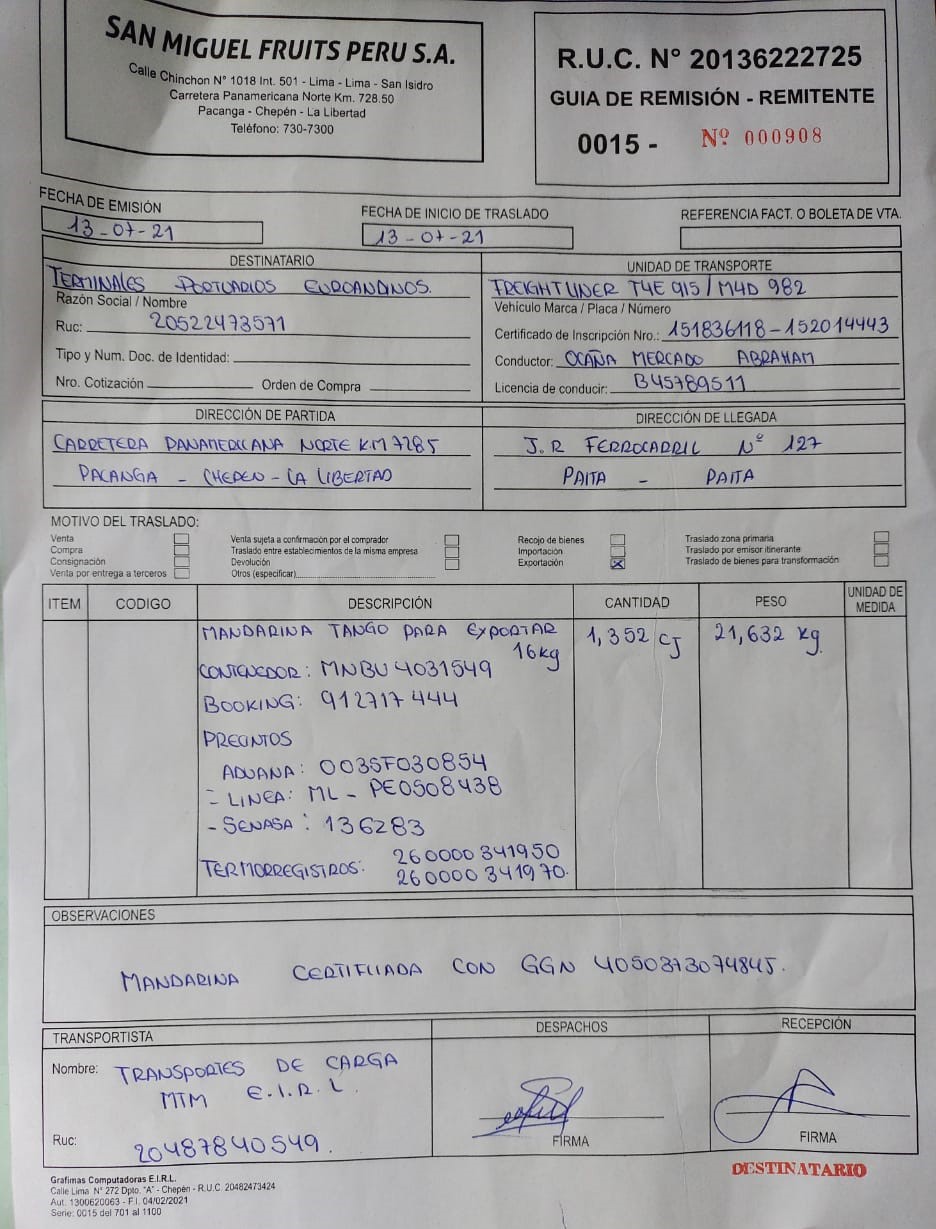 SAN MIGUEL FRUITS PERU S.A.
Calle Chinchon N° 1018 Int. 501 - Lima - Lima - San Isidro
Carretera Panamericana Norte Km. 728.50
Pacanga - Chepén - La Libertad
Teléfono: 730-7300
R.U.C. N° 20136222725
GUIA DE REMISIÓN - REMITENTE
0015 - Nº 000908
FECHA DE EMISIÓN
13-07-21
FECHA DE INICIO DE TRASLADO
13-07-21
REFERENCIA FACT. O BOLETA DE VTA.
DESTINATARIO
TERMINALES PORTUARIOS EUROANDINOS.
Razón Social / Nombre
Ruc: 20522473571
Tipo y Num. Doc. de Identidad:
Nro. Cotización Orden de Compra
UNIDAD DE TRANSPORTE
FREIGHTLINER T4E 915 / M4D 982
Vehículo Marca / Placa / Número
Certificado de Inscripción Nro.: 151836118-152014443
Conductor: OCAÑA MERCADO ABRAHAM
Licencia de conducir: B45789511
DIRECCIÓN DE PARTIDA
CARRETERA PANAMERICANA NORTE KM 7285
PACANGA - CHEPEN - LA LIBERTAD
DIRECCIÓN DE LLEGADA
J.R FERROCARRIL Nº 127
PAITA - PAITA
MOTIVO DEL TRASLADO:
Venta
Compra
Consignación
Venta por entrega a terceros
Venta sujeta a confirmación por el comprador
Traslado entre establecimientos de la misma empresa
Devolución
Otros (especificar)
Recojo de bienes
Importación
Exportación X
Traslado zona primaria
Traslado por emisor itinerante
Traslado de bienes para transformación
ITEM CODIGO DESCRIPCIÓN CANTIDAD PESO UNIDAD DE MEDIDA
MANDARINA TANGO PARA EXPORTAR 1,352 CJ 21,632 Kg.
16kg
CONTENEDOR: MNBU 4031549
BOOKING: 912717444
PRECINTOS
ADUANA: 0035F030854
- LINEA: ML - PE0508438
- SENASA: 136283
TERMORREGISTROS: 260000341950
260000341970.
OBSERVACIONES
MANDARINA CERTIFICADA CON GGN 4050373074845.
TRANSPORTISTA
Nombre: TRANSPORTES DE CARGA
MTM E.I.R.L.
Ruc: 20487840549.
DESPACHOS
FIRMA
RECEPCIÓN
FIRMA
DESTINATARIO
Grafimas Computadoras E.I.R.L.
Calle Lima N° 272 Dpto. "A" - Chepén - R.U.C. 20482473424
Aut. 1300620063 - F.I. 04/02/2021
Serie: 0015 del 701 al 1100